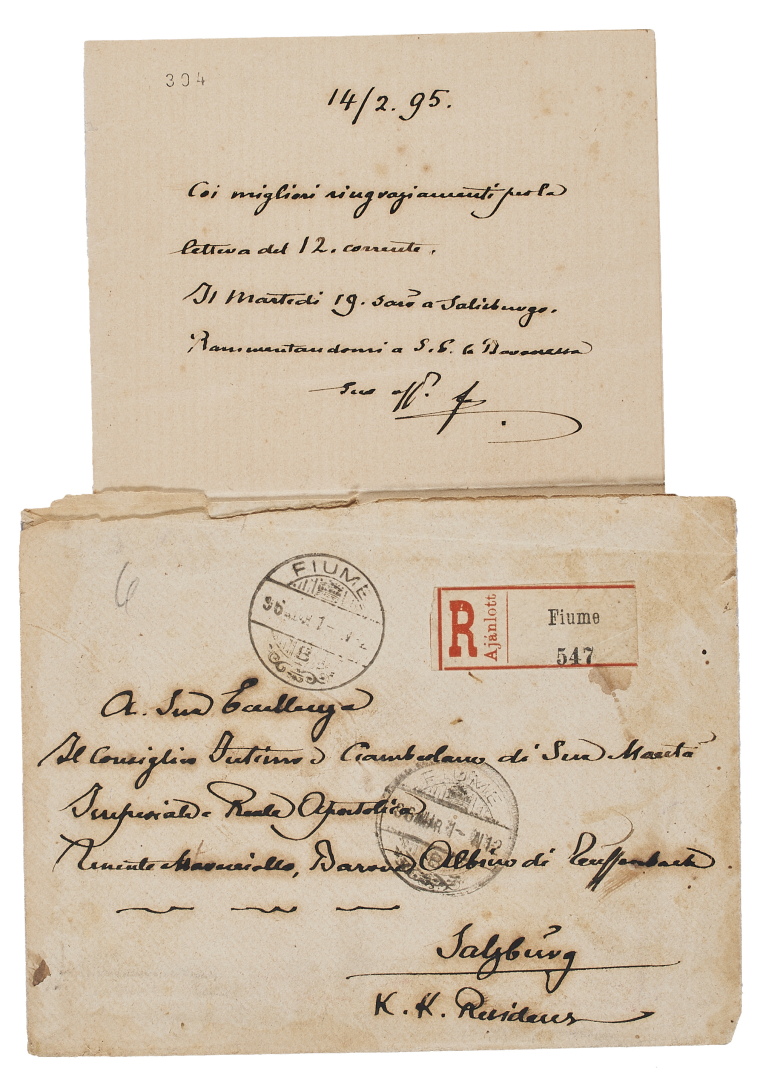 304
14/2. 95.
Coi migliori ringraziamenti per la
lettera del 12. corrente.
Il Martedì 19. sarò a Salisburgo.
Rammentandomi a S. E. la Baronessa
Suo aff.
6
FIUME
96 MAR 1 - N 12
B
R
Ajánlott
Fiume
547
A. Sua Eccellenza
Il Consiglio Intimo e Ciambelano di Sua Maestà
Imperiale e Reale Apostolica
FIUME
96 MAR 1 - N 12
B
Tenente Maresciallo, Barone Albino di Teuffenbach
Salzburg
K. K. Residenz